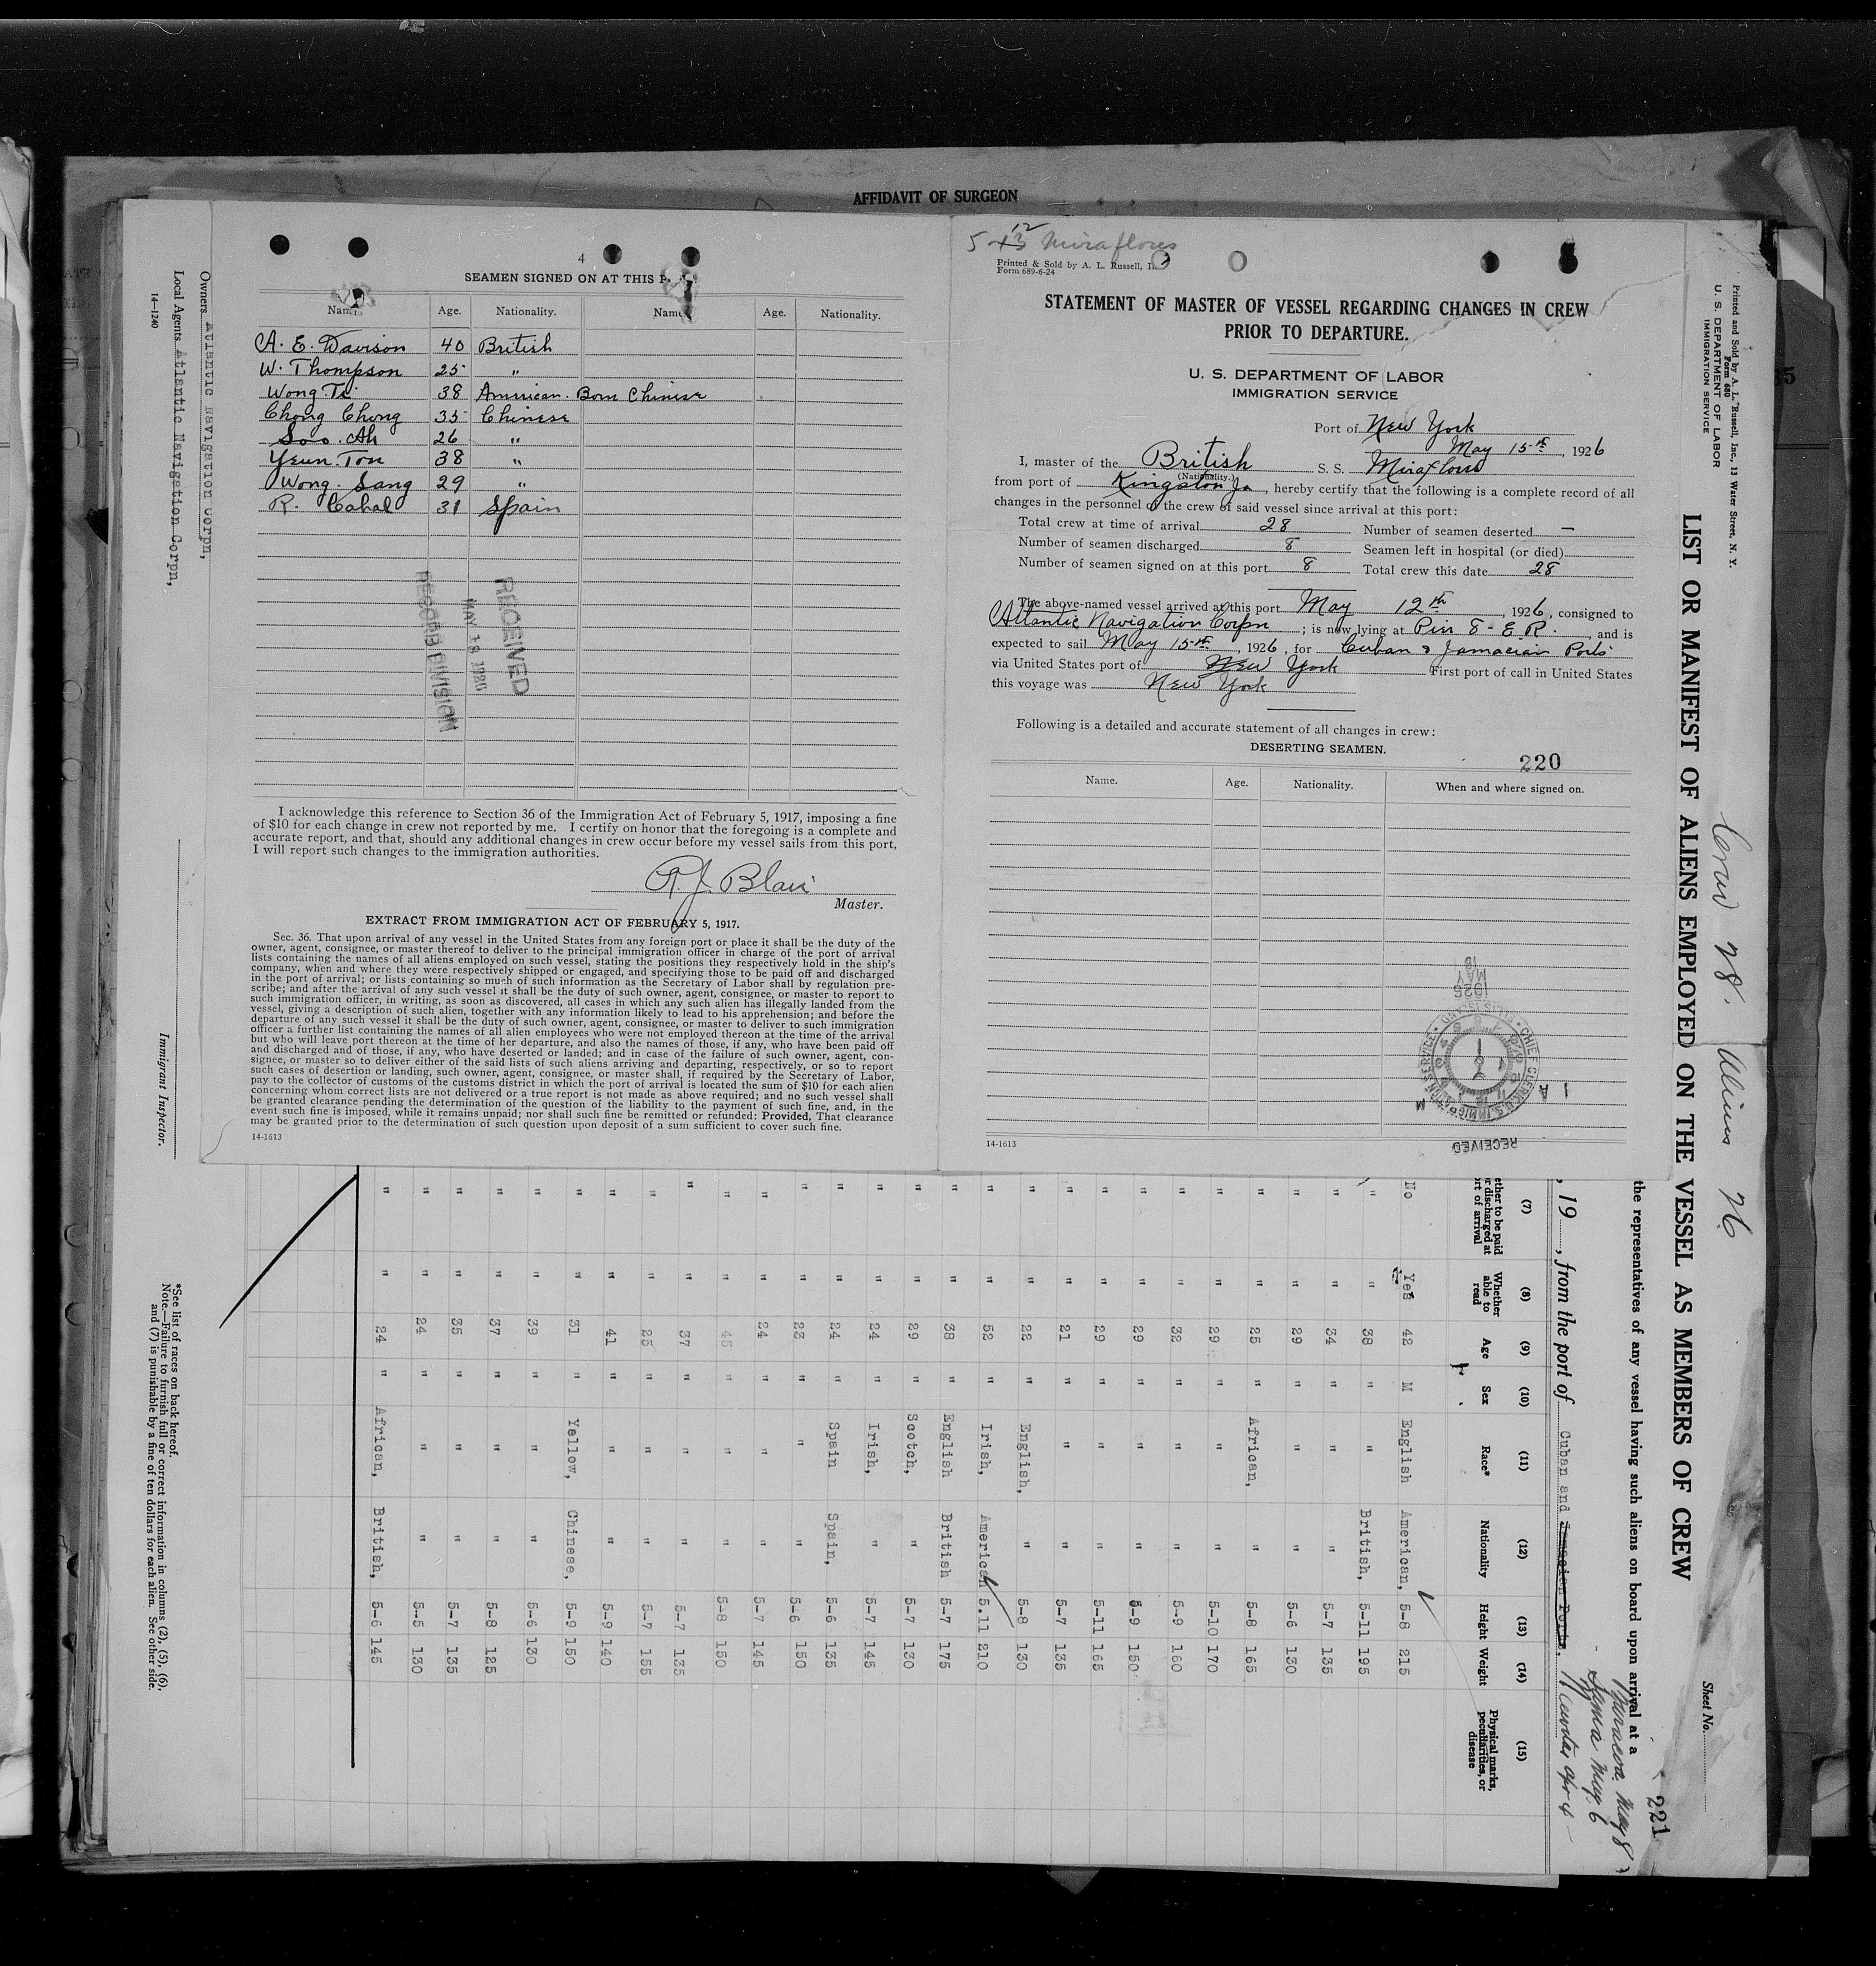 AFFIDAVIT OF SURGEON
4
SEAMEN SIGNED ON AT THIS P
Name. Age. Nationality. Name. Age. Nationality.
A. E. Davison 40 British
W. Thompson 25 "
Wong Ti 38 American Born Chinese
Chong Chong 35 Chinese
Soo. Ah 26 "
Yeun. Ton 38 "
Wong. Sang 29 "
R. Cabal 31 Spain
RECEIVED
MAY 18 1926
RECORD DIVISION
I acknowledge this reference to Section 36 of the Immigration Act of February 5, 1917, imposing a fine
of $10 for each change in crew not reported by me. I certify on honor that the foregoing is a complete and
accurate report, and that, should any additional changes in crew occur before my vessel sails from this port,
I will report such changes to the immigration authorities.
R. J. Blair
Master.
EXTRACT FROM IMMIGRATION ACT OF FEBRUARY 5, 1917.
Sec. 36. That upon arrival of any vessel in the United States from any foreign port or place it shall be the duty of the
owner, agent, consignee, or master thereof to deliver to the principal immigration officer in charge of the port of arrival
lists containing the names of all aliens employed on such vessel, stating the positions they respectively hold in the ship's
company, when and where they were respectively shipped or engaged, and specifying those to be paid off and discharged
in the port of arrival; or lists containing so much of such information as the Secretary of Labor shall by regulation pre-
scribe; and after the arrival of any such vessel it shall be the duty of such owner, agent, consignee, or master to report to
such immigration officer, in writing, as soon as discovered, all cases in which any such alien has illegally landed from the
vessel, giving a description of such alien, together with any information likely to lead to his apprehension; and before the
departure of any such vessel it shall be the duty of such owner, agent, consignee, or master to deliver to such immigration
officer a further list containing the names of all alien employees who were not employed thereon at the time of the arrival
but who will leave port thereon at the time of her departure, and also the names of those, if any, who have been paid off
and discharged and of those, if any, who have deserted or landed; and in case of the failure of such owner, agent, con-
signee, or master so to deliver either of the said lists of such aliens arriving and departing, respectively, or so to report
such cases of desertion or landing, such owner, agent, consignee, or master shall, if required by the Secretary of Labor,
pay to the collector of customs of the customs district in which the port of arrival is located the sum of $10 for each alien
concerning whom correct lists are not delivered or a true report is not made as above required; and no such vessel shall
be granted clearance pending the determination of the question of the liability to the payment of such fine, and, in the
event such fine is imposed, while it remains unpaid; nor shall such fine be remitted or refunded: Provided, That clearance
may be granted prior to the determination of such question upon deposit of a sum sufficient to cover such fine.
14-1613
5-12 Miraflores
Printed & Sold by A. L. Russell, I
Form 689-6-24
STATEMENT OF MASTER OF VESSEL REGARDING CHANGES IN CREW
PRIOR TO DEPARTURE.
U. S. DEPARTMENT OF LABOR
IMMIGRATION SERVICE
Port of New York
May 15th, 1926
I, master of the British S. S. Miraflores
(Nationality.)
from port of Kingston Ja, hereby certify that the following is a complete record of all
changes in the personnel of the crew of said vessel since arrival at this port:
Total crew at time of arrival 28 Number of seamen deserted —
Number of seamen discharged 8 Seamen left in hospital (or died)
Number of seamen signed on at this port 8 Total crew this date 28
The above-named vessel arrived at this port May 12th, 1926, consigned to
Atlantic Navigation Corpn; is now lying at Pier 8 - E. R., and is
expected to sail May 15th, 1926, for Cuban & Jamacian Ports
via United States port of New York First port of call in United States
this voyage was New York
Following is a detailed and accurate statement of all changes in crew:
DESERTING SEAMEN.
220
Name. Age. Nationality. When and where signed on.
1926
MAY
18
RECEIVED
14-1613
Printed and Sold by A. L. Russell, Inc., 13 Water Street, N. Y.
Form 680
U. S. DEPARTMENT OF LABOR
IMMIGRATION SERVICE
LIST OR MANIFEST OF ALIENS EMPLOYED ON THE VESSEL AS MEMBERS OF CREW
Crew 28. Aliens 26
Sheet No.
221
the representatives of any vessel having such aliens on board upon arrival at a
, 19 , from the port of Cuban and Jamacian Ports,
Baracoa. May 8
May 6
(7) (8) (9) (10) (11) (12) (13) (14) (15)
ether to be paid r discharged at rt of arrival Whether able to read Age Sex Race* Nationality Height Weight Physical marks, peculiarities, or disease
No Yes 42 M English American, 5-8 215
" " 38 " " British, 5-11 195
" " 34 " " " 5-7 135
" " 29 " " " 5-6 130
" " 25 " African, " 5-8 165
" " 29 " " " 5-10 170
" " 32 " " " 5-9 160
" " 29 " " " 5-9 150
" " 29 " " " 5-11 165
" " 21 " " " 5-7 135
" " 22 " English, " 5-8 130
" " 52 " Irish, American 5.11 210
" " 38 " English British 5-7 175
" " 29 " Scotch, " 5-7 130
" " 24 " Irish, " 5-7 145
" " 24 " Spain Spain, 5-6 135
" " 23 " " " 5-6 150
" " 24 " " " 5-7 145
" " 45 " " " 5-8 150
" " 37 " " " 5-7 135
" " 25 " " " 5-7 155
" " 41 " " " 5-9 140
" " 31 " Yellow, Chinese, 5-9 150
" " 39 " " " 5-6 130
" " 37 " " " 5-8 125
" " 35 " " " 5-7 135
" " 24 " " " 5-5 130
" " 24 " African, British, 5-6 145
Owners Atlantic Navigation Corpn,
Local Agents Atlantic Navigation Corpn,
14-1240
Immigrant Inspector.
*See list of races on back hereof.
Note.—Failure to furnish full or correct information in columns (2), (5), (6),
and (7) is punishable by a fine of ten dollars for each alien. See other side.